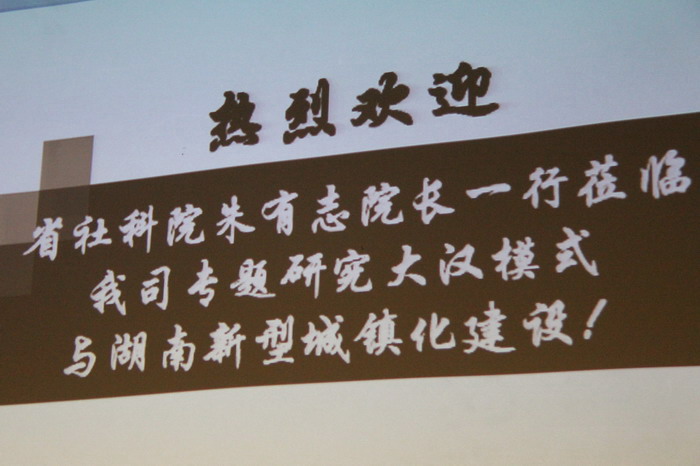 热烈欢迎
省社科院朱有志院长一行莅临
我司专题研究大汉模式
与湖南新型城镇化建设！